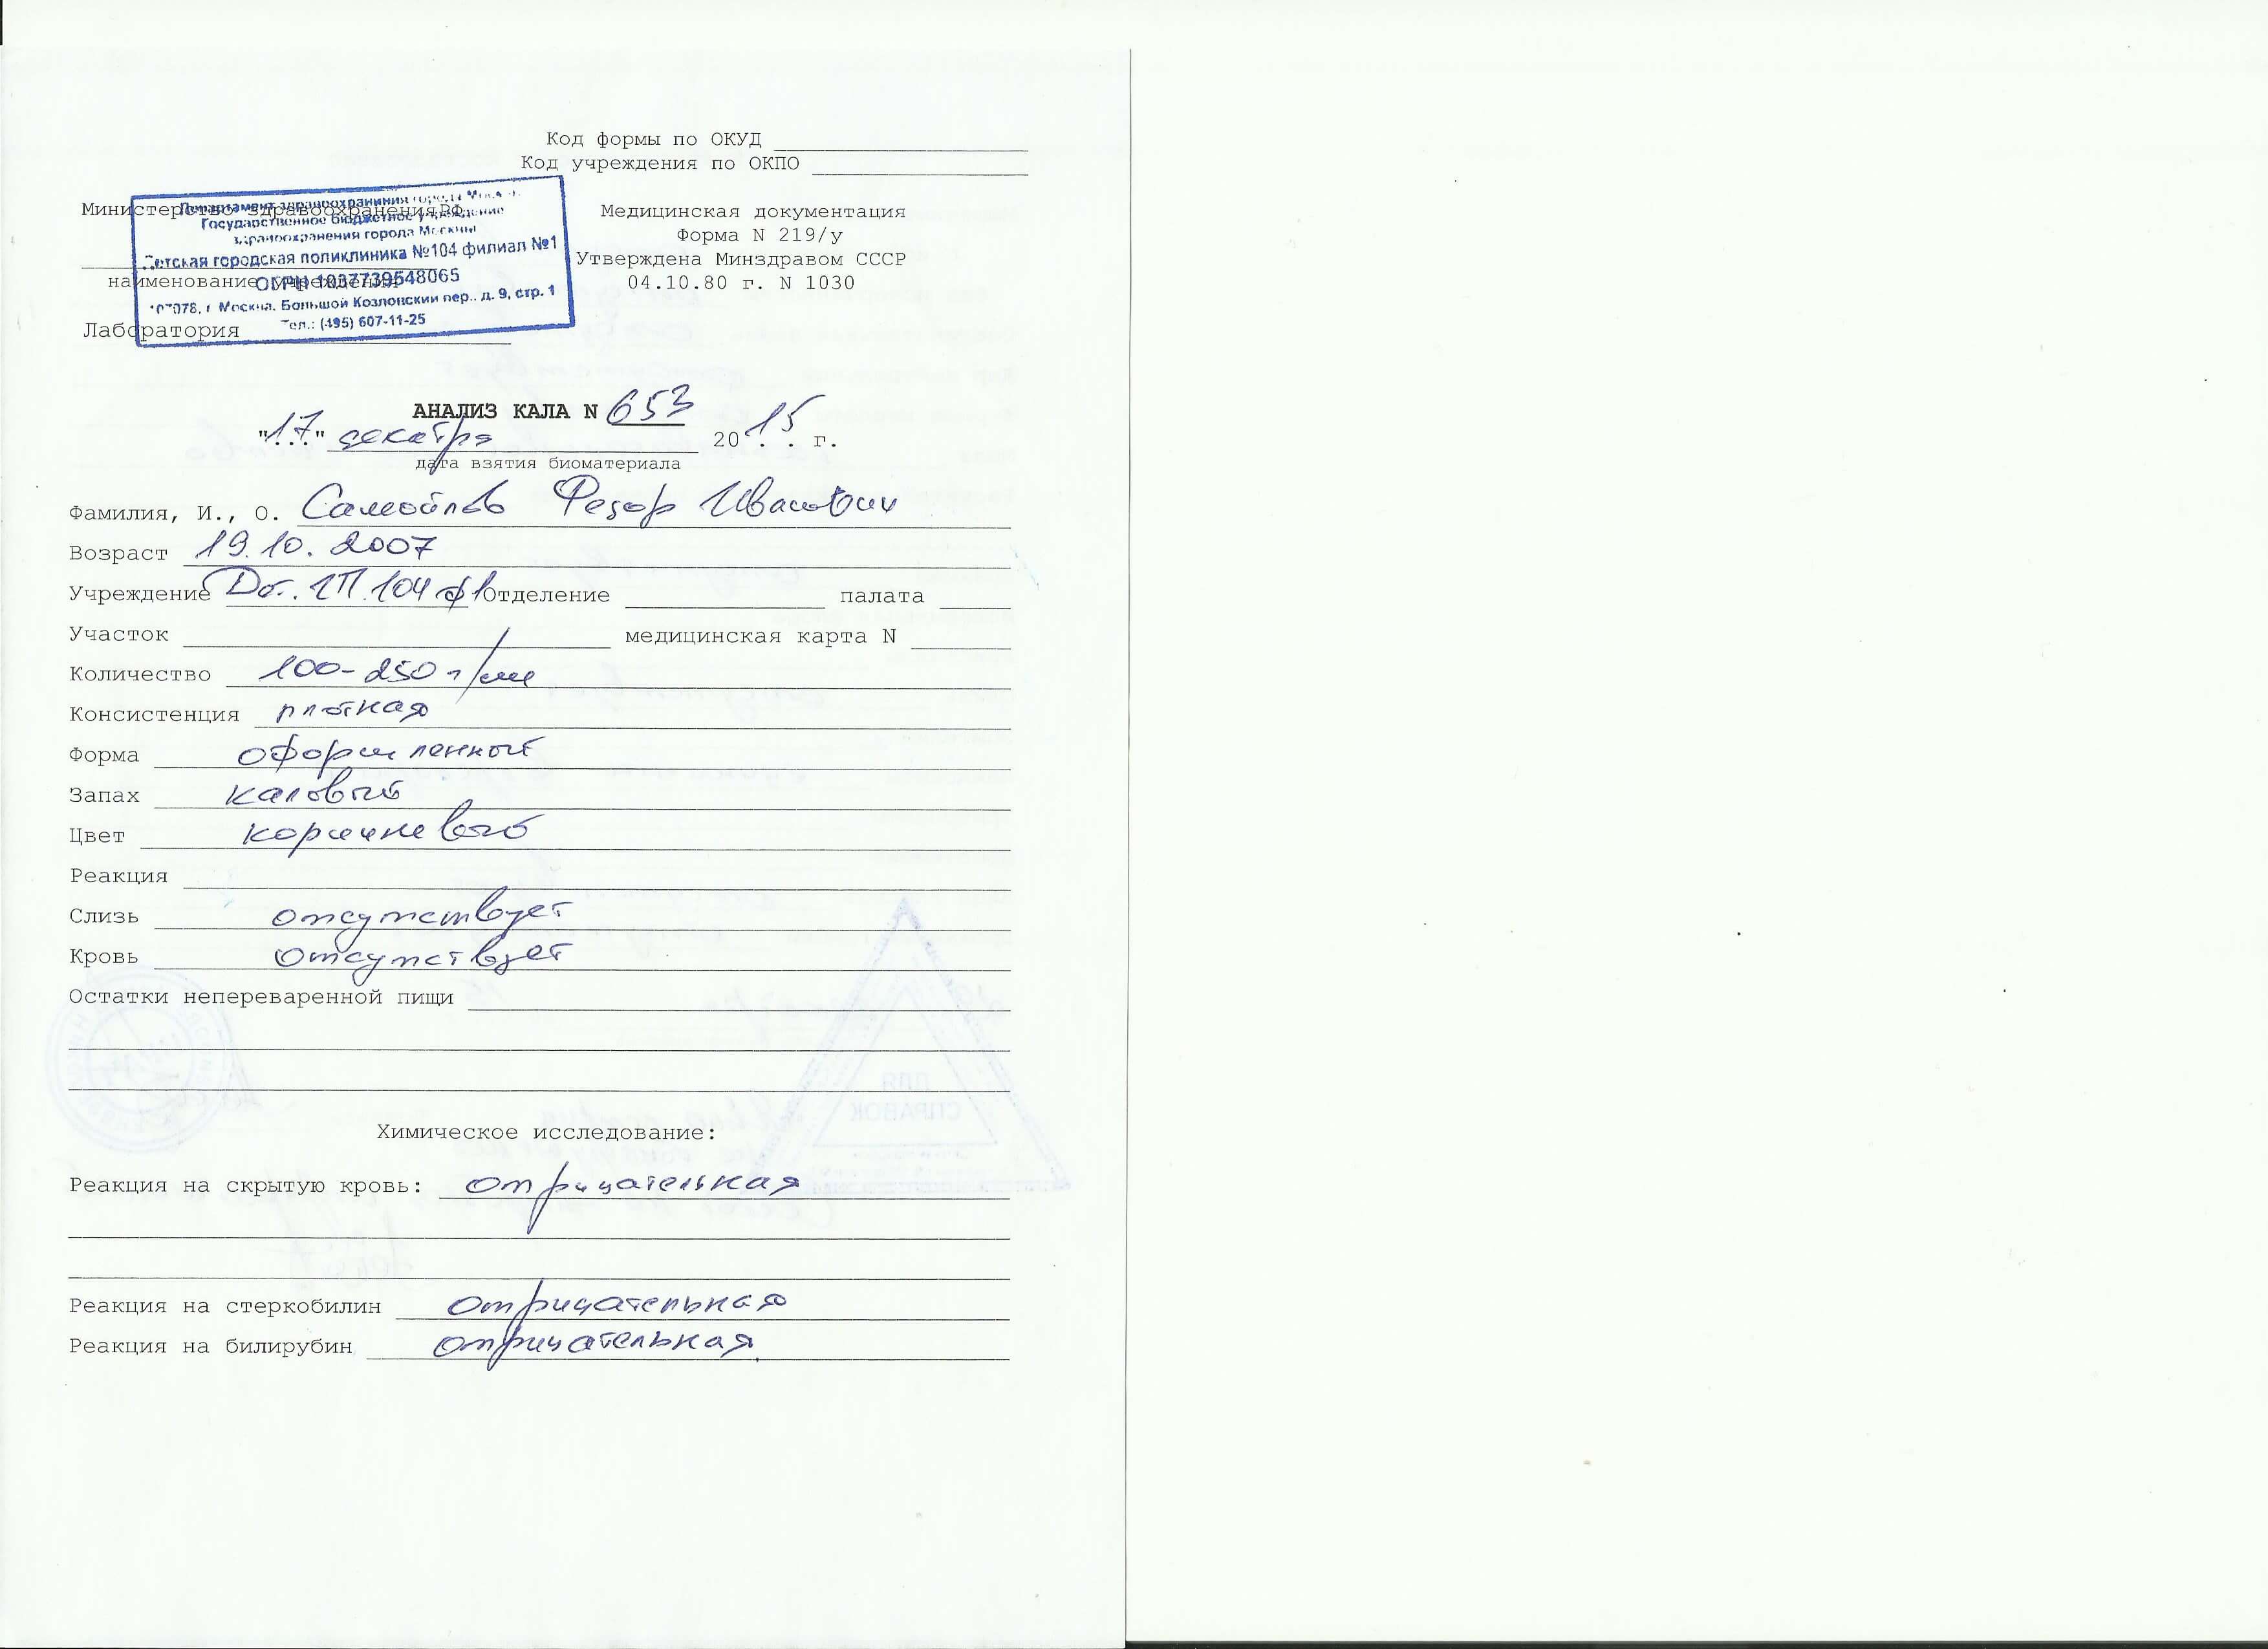 Код формы по ОКУД
Код учреждения по ОКПО
Министерство здравоохранения РФ
Департамент здравоохранения города
Государственное бюджетное учреждение
здравоохранения города Москвы
Детская городская поликлиника №104 филиал №1
ОГРН 1037739548065
107078, г Москва. Большой Козловский пер., д. 9, стр. 1
Тел.: (495) 607-11-25
наименование учреждения
Лаборатория
Медицинская документация
Форма N 219/у
Утверждена Минздравом СССР
04.10.80 г. N 1030
АНАЛИЗ КАЛА N 653
"17" декабря 2015 г.
дата взятия биоматериала
Фамилия, И., О. Самойлов Федор Иванович
Возраст 19.10.2007
Учреждение 104 ф1 Отделение палата
Участок медицинская карта N
Количество 100-250 г/мл
Консистенция плотная
Форма оформленный
Запах каловый
Цвет коричневый
Реакция
Слизь отсутствует
Кровь отсутствует
Остатки непереваренной пищи
ДЛЯ
СПРАВОК
Химическое исследование:
Реакция на скрытую кровь: отрицательная
Реакция на стеркобилин отрицательная
Реакция на билирубин отрицательная